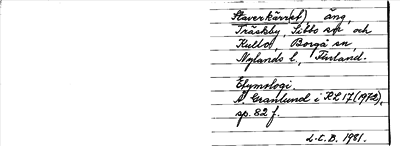 Staverkärr(et) äng,
Träskby, Sibbo sn och
Kullo, Borgå sn,
Nylands l., Finland.
Etymologi.
Å. Granlund i RL 17 (1972),
sp. 82 f.
L.C.B. 1981.